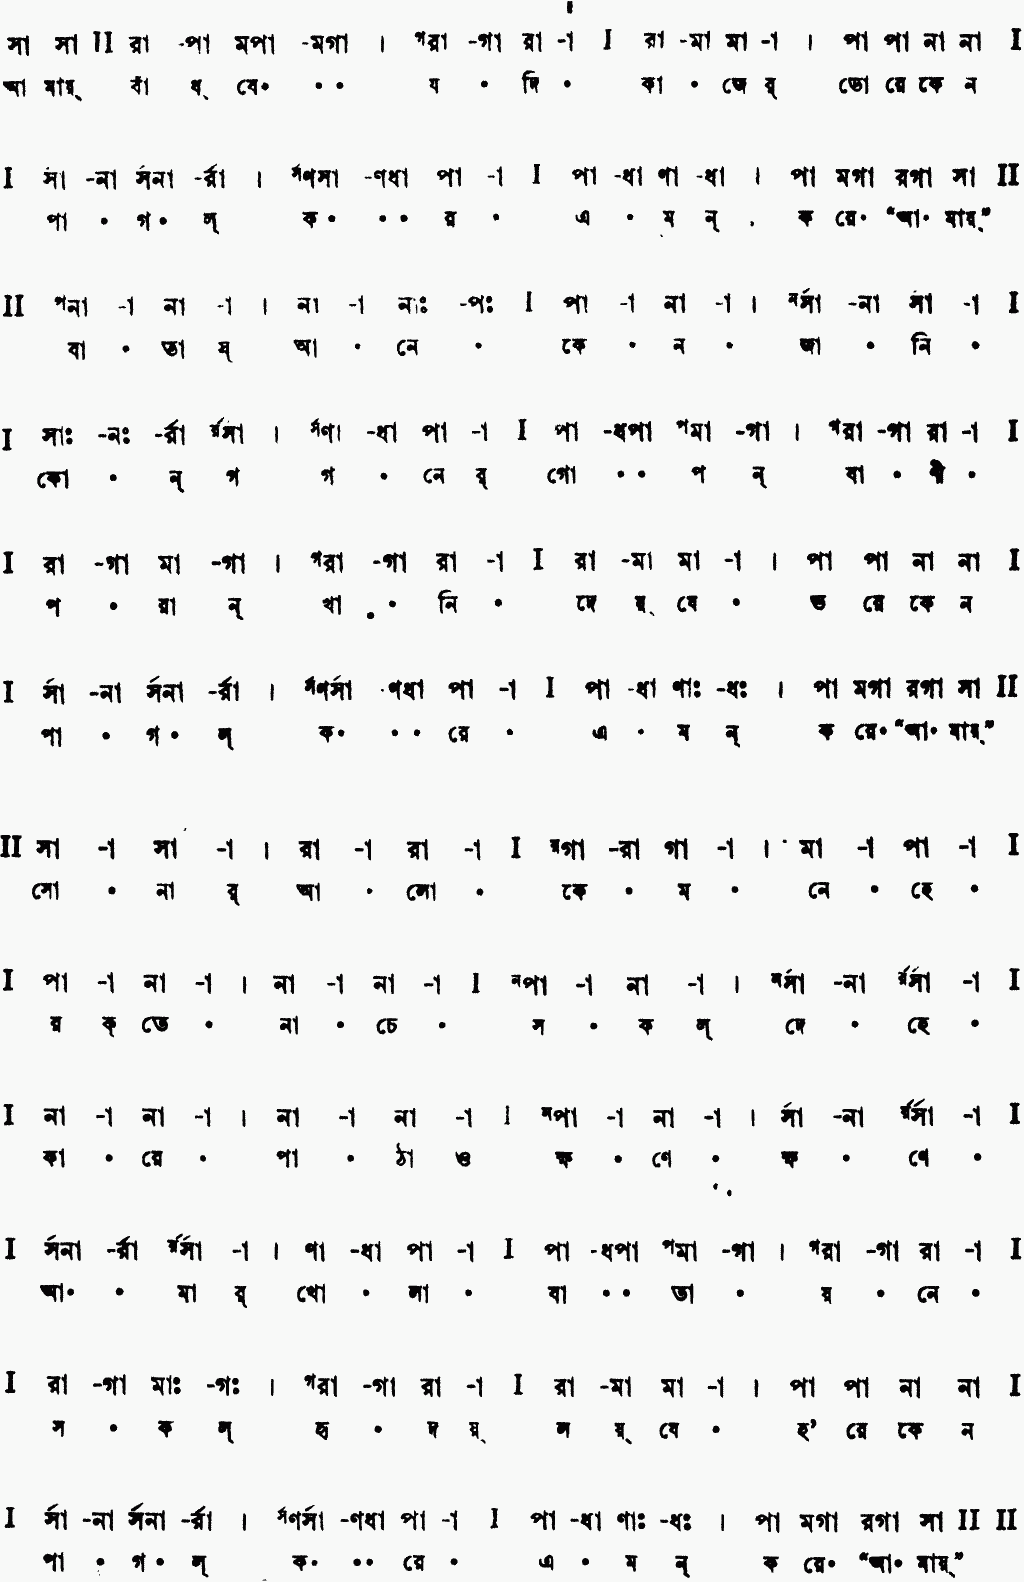 সা সা II রা -পা মপা -মগা । ᵍরা -গা রা -া I রা -মা মা -া । পা পা না না I
আ মায়্ বাঁ ধ্ বে॰ ॰ ॰ য ॰ দি ॰ কা ॰ জে র্ ডো রে কে ন
I র্সা -না র্সনা -র্রা । র্সণর্সা -ণধা পা -া I পা -ধা ণা -ধা । পা মগা রগা সা II
পা ॰ গ॰ ল্ ক॰ ॰ ॰ র ॰ এ ॰ ম ন্ ক রে॰ “আ॰ মায়্”
II পনা -া না -া । না -া নাঃ -পঃ I পা -া না -া । নর্সা -না র্সা -া I
বা ॰ তা স্ আ ॰ নে ॰ কে ॰ ন ॰ জা ॰ নি ॰
I র্সাঃ -নঃ -র্রা র্রর্সা । র্সণা -ধা পা -া I পা -ধপা পমা -গা । গরা -গা রা -া I
কো ॰ ন্ গ গ ॰ নে র্ গো ॰ ॰ প ন্ বা ॰ ণী ॰
I রা -গা মা -গা । গরা -গা রা -া I রা -মা মা -া । পা পা না না I
প ॰ রা ন্ খা ॰ নি ॰ দে য়্ যে ॰ ভ রে কে ন
I র্সা -না র্সনা -র্রা । র্সণর্সা -ণধা পা -া I পা -ধা ণাঃ -ধঃ । পা মগা রগা সা II
পা ॰ গ॰ ল্ ক॰ ॰ ॰ রে ॰ এ ॰ ম ন্ ক রে॰ “আ॰ মায়্”
II সা -া সা -া । রা -া রা -া I রগা -রা গা -া । মা -া পা -া I
সো ॰ না র্ আ ॰ লো ॰ কে ॰ ম ॰ নে ॰ হে ॰
I পা -া না -া । না -া না -া I নপা -া না -া । নর্সা -না র্রর্সা -া I
র ক্ তে ॰ না ॰ চে ॰ স ॰ ক ল্ দে ॰ হে ॰
I না -া না -া । না -া না -া I নপা -া না -া । র্সা -না র্রর্সা -া I
কা ॰ রে ॰ পা ॰ ঠা ও ক্ষ ॰ ণে ॰ ক্ষ ॰ ণে ॰
I র্সনা -র্রা র্রর্সা -া । ণা -ধা পা -া I পা -ধপা পমা -গা । গরা -গা রা -া I
আ॰ ॰ মা র্ খো ॰ লা ॰ বা ॰ ॰ তা ॰ য় ॰ নে ॰
I রা -গা মাঃ -গঃ । গরা -গা রা -া I রা -মা মা -া । পা পা না না I
স ॰ ক ল্ হৃ ॰ দ য়্ ল য়্ যে ॰ হ’ রে কে ন
I র্সা -না র্সনা -র্রা । র্সণর্সা -ণধা পা -া I পা -ধা ণাঃ -ধঃ । পা মগা রগা সা II II
পা ॰ গ॰ ল্ ক॰ ॰॰ রে ॰ এ ॰ ম ন্ ক রে॰ “আ॰ মায়্”